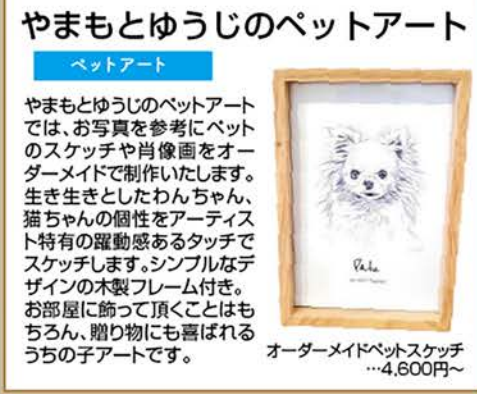 やまもとゆうじのペットアート
ペットアート
やまもとゆうじのペットアート
では、お写真を参考にペット
のスケッチや肖像画をオー
ダーメイドで制作いたします。
生き生きとしたわんちゃん、
猫ちゃんの個性をアーティス
ト特有の躍動感あるタッチで
スケッチします。シンプルなデ
ザインの木製フレーム付き。
お部屋に飾って頂くことはも
ちろん、贈り物にも喜ばれる
うちの子アートです。
オーダーメイドペットスケッチ
…4,600円〜